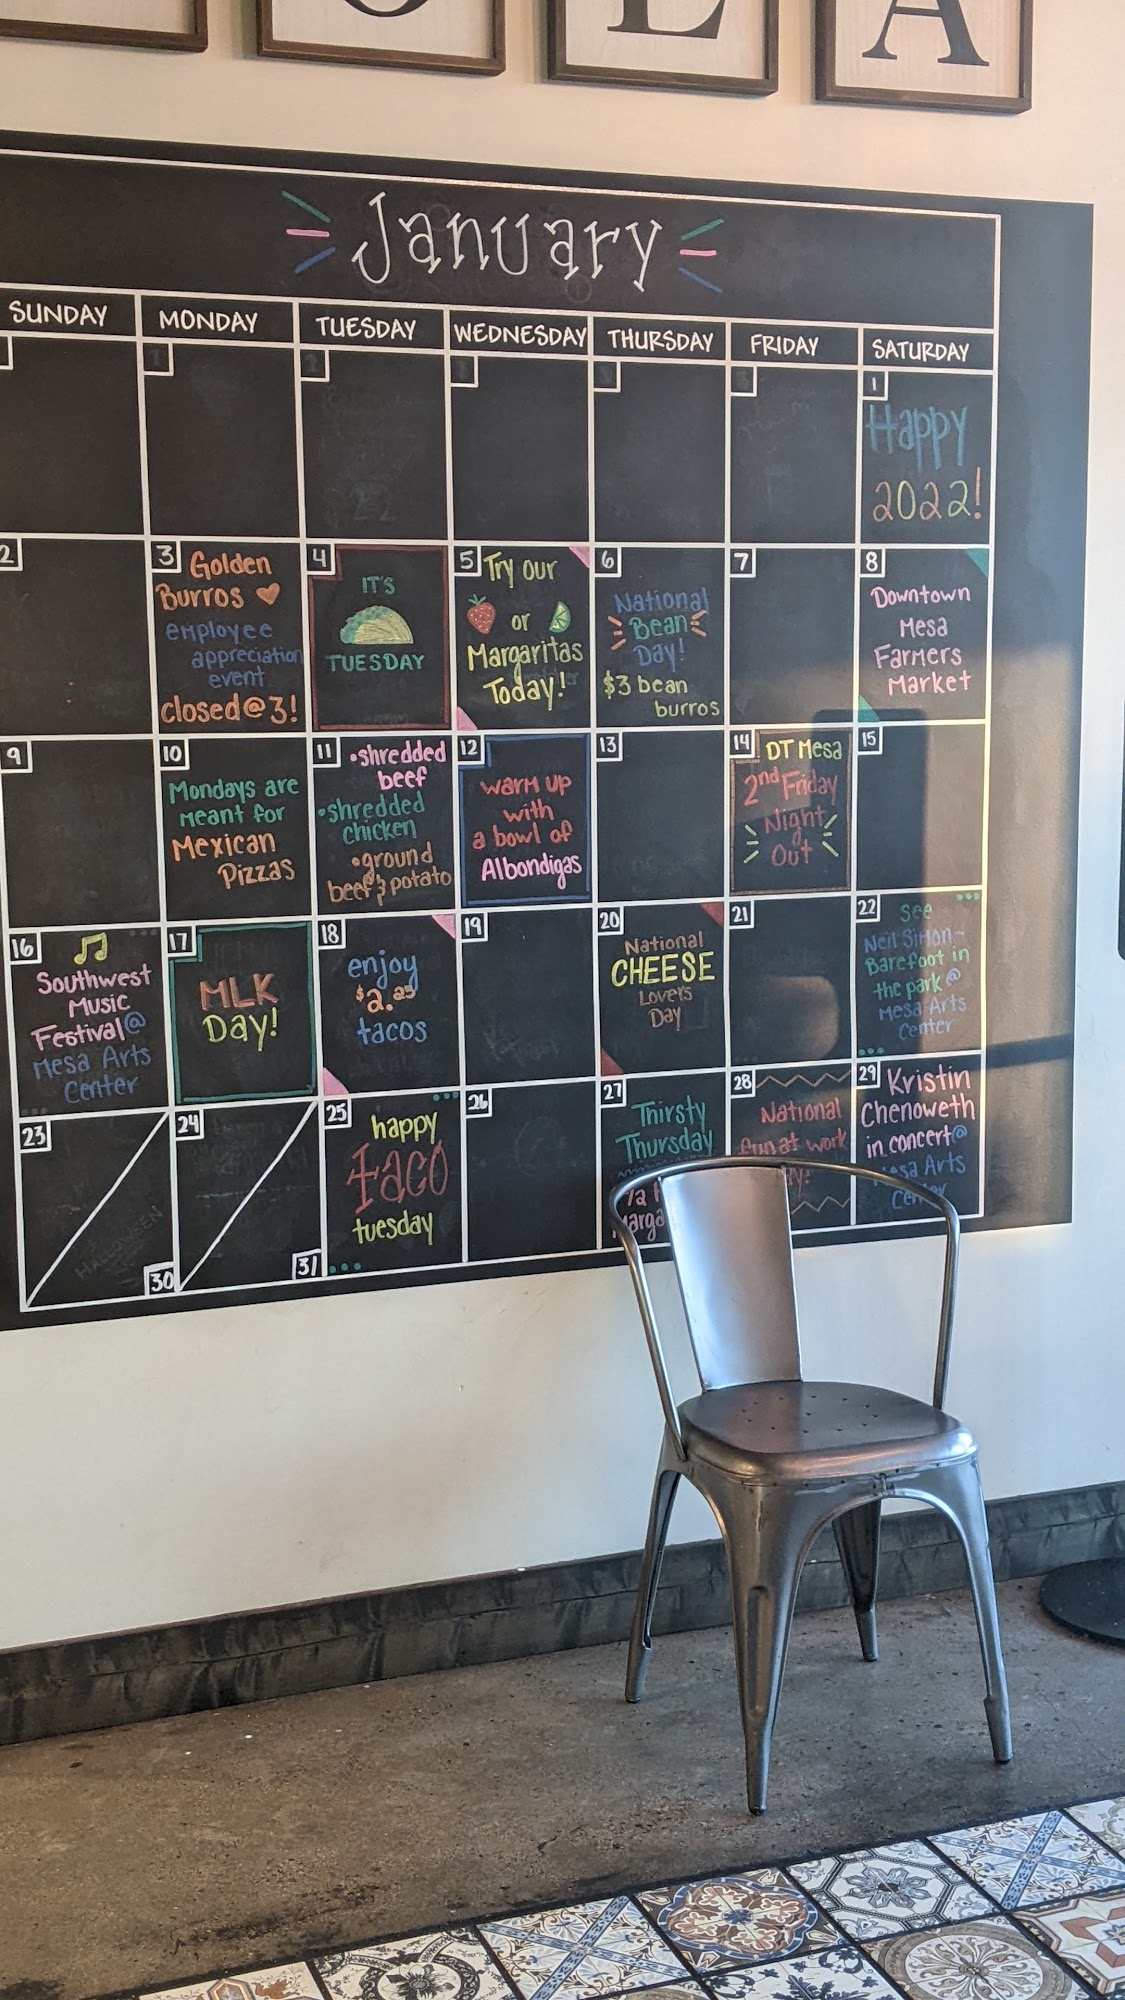 O L A
January
SUNDAY MONDAY TUESDAY WEDNESDAY THURSDAY FRIDAY SATURDAY
1
Happy
2022!
2
3 Golden
Burros
employee
appreciation
event
closed@3!
4
IT'S
TUESDAY
5 Try our
or
Margaritas
Today!
6
National
Bean
Day!
$3 bean
burros
7
8
Downtown
Mesa
Farmers
Market
9
10
Mondays are
meant for
Mexican
Pizzas
11 •shredded
beef
•shredded
chicken
•ground
beef & potato
12
warm up
with
a bowl of
Albondigas
13
14 DT Mesa
2nd Friday
Night
Out
15
16
Southwest
Music
Festival@
Mesa Arts
Center
17
MLK
Day!
18
enjoy
$2.25
tacos
19
20
National
CHEESE
Lovers
Day
21
22 See
Neil Simon-
Barefoot in
the park@
Mesa Arts
Center
23
HALLOWEEN
30
24
31
25
happy
taco
tuesday
26
27
Thirsty
Thursday
28
National
fun at work
29 Kristin
Chenoweth
in concert@
Mesa Arts
Center